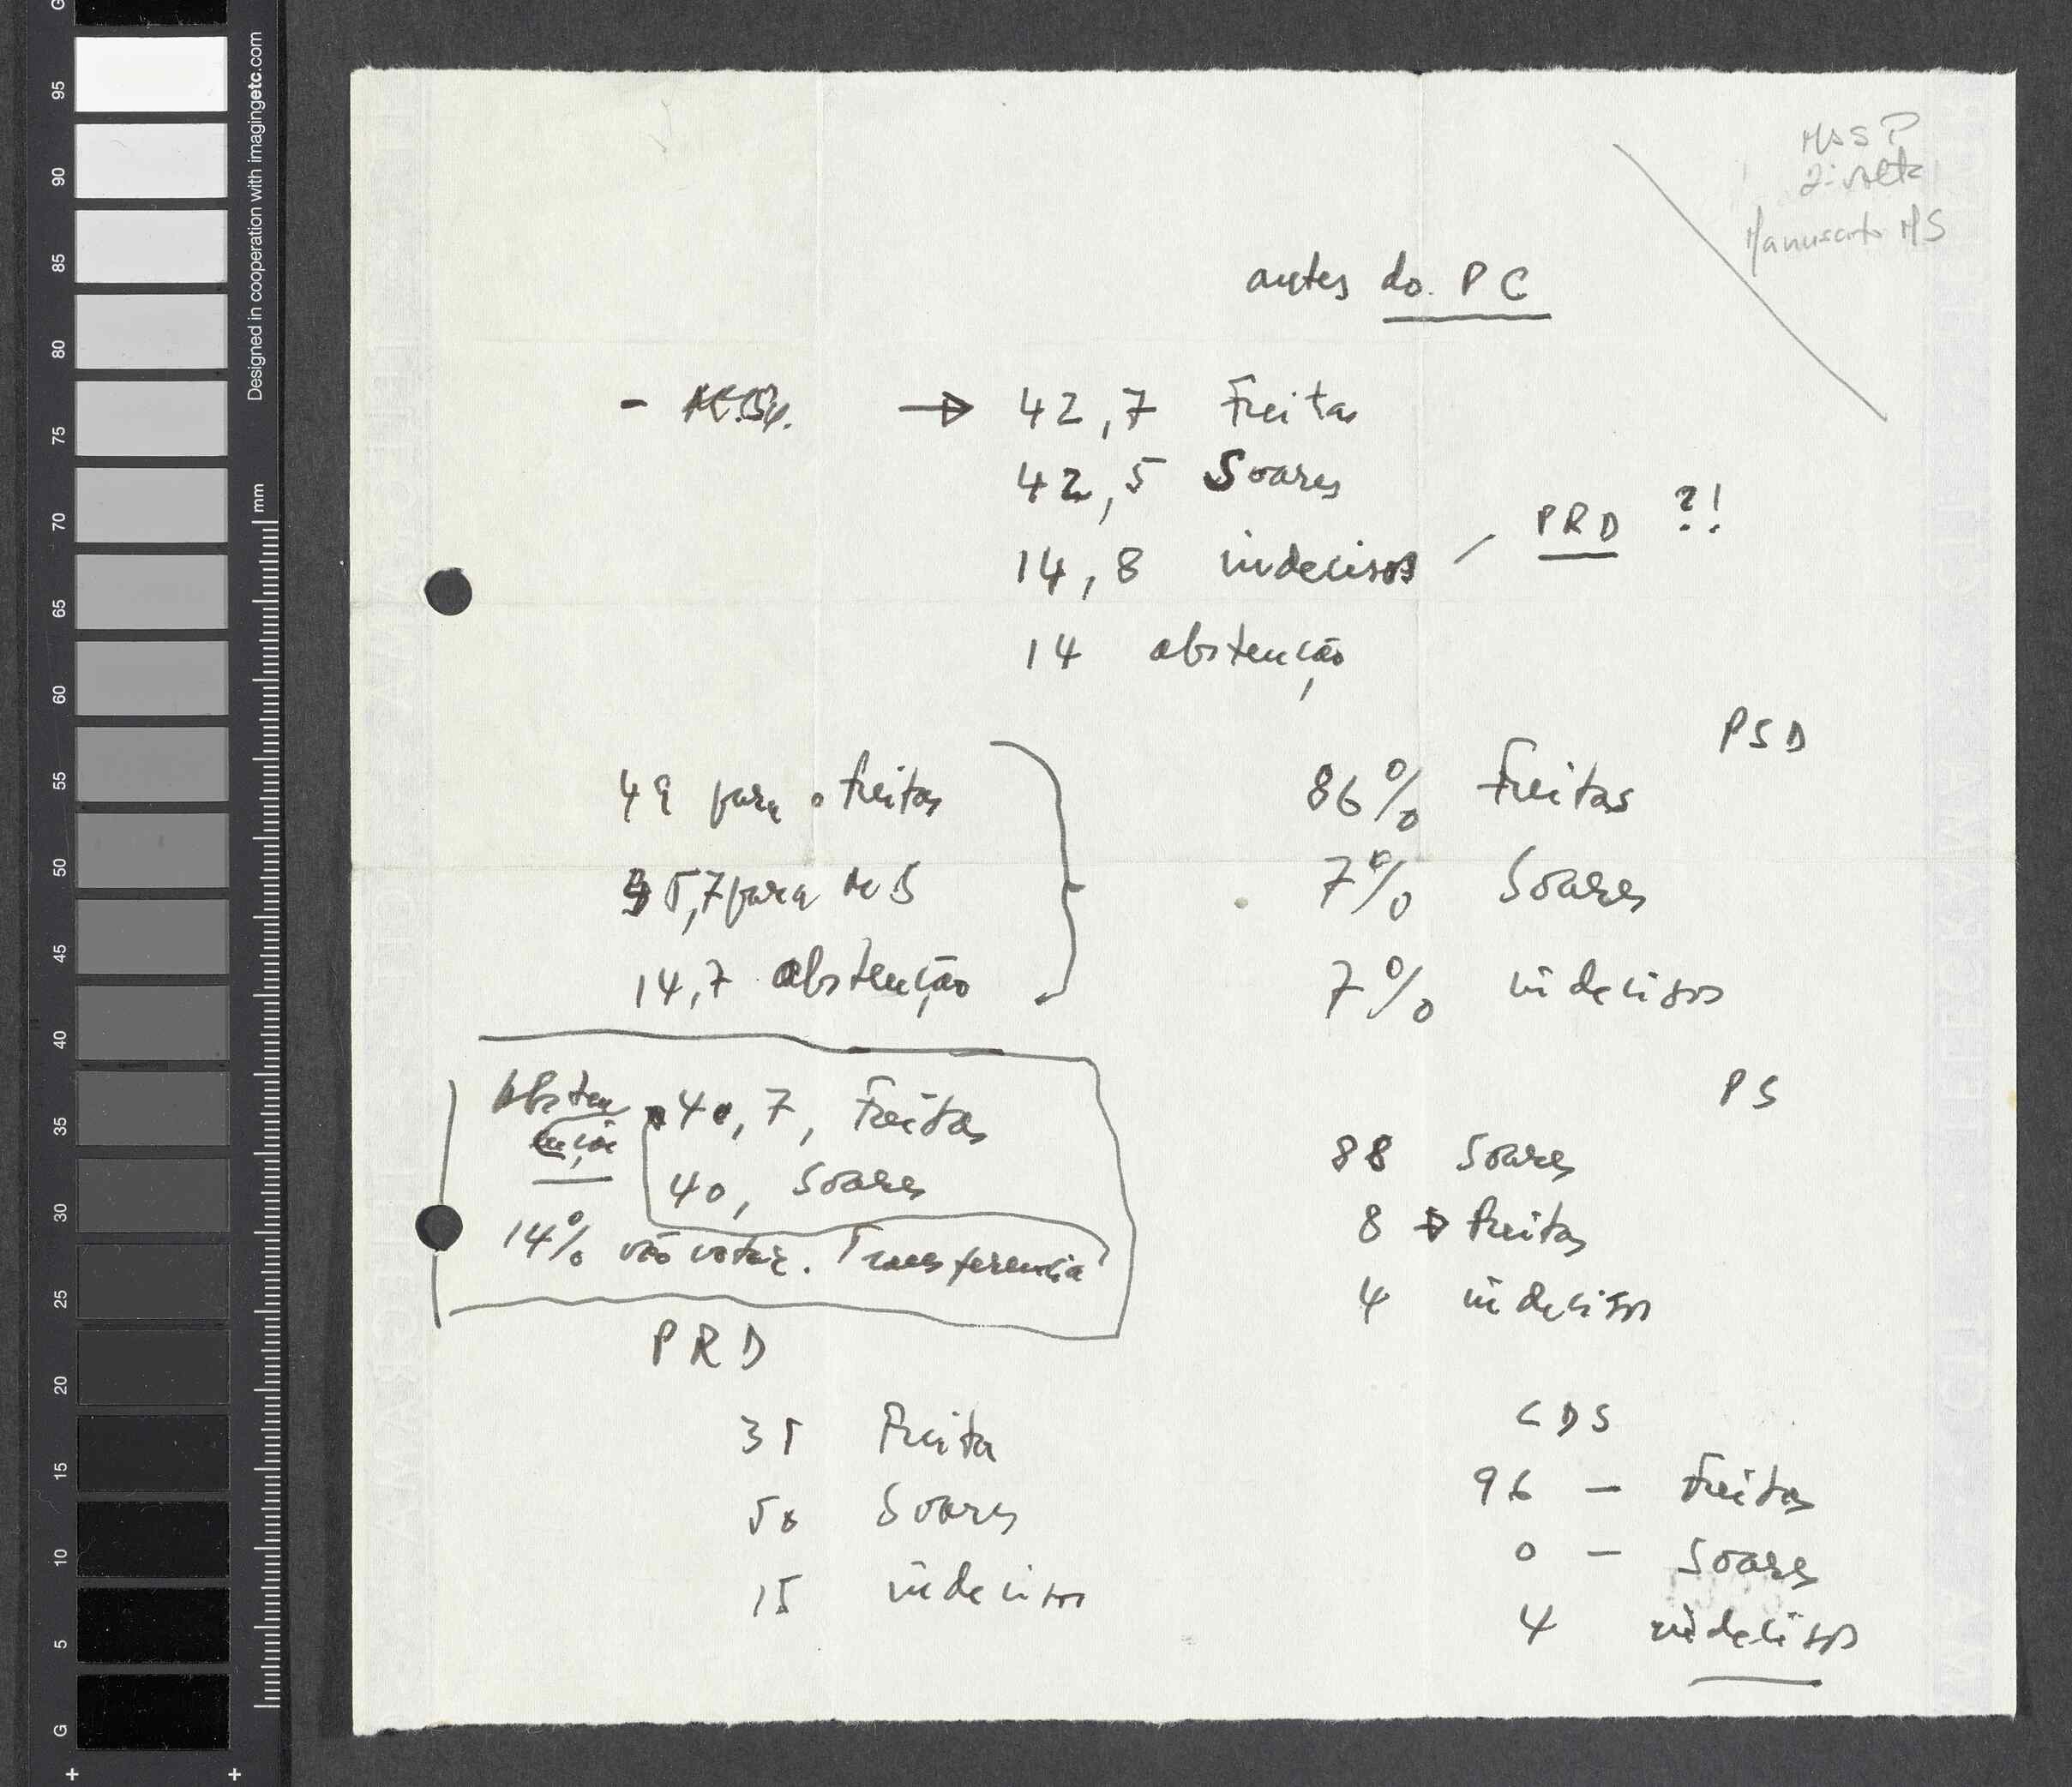 MASP
2ª volta
Manuscrito MS
antes do PC
- → 42,7 Freitas
42,5 Soares
14,8 indecisos / PRD ?!
14 abstenção
49 para o freitas
35,7 para MS
14,7 abstenção
PSD
86% Freitas
7% Soares
7% indecisos
40,7, Freitas
40, Soares
14% vão votar. Transferencia
PS
88 Soares
8 → Freitas
4 indecisos
PRD
35 Freita
50 Soares
15 indecisos
CDS
96 — Freitas
0 — Soares
4 indecisos
Designed in cooperation with imagingetc.com
mm
95
90
85
80
75
70
65
60
55
50
45
40
35
30
25
20
15
10
5
G